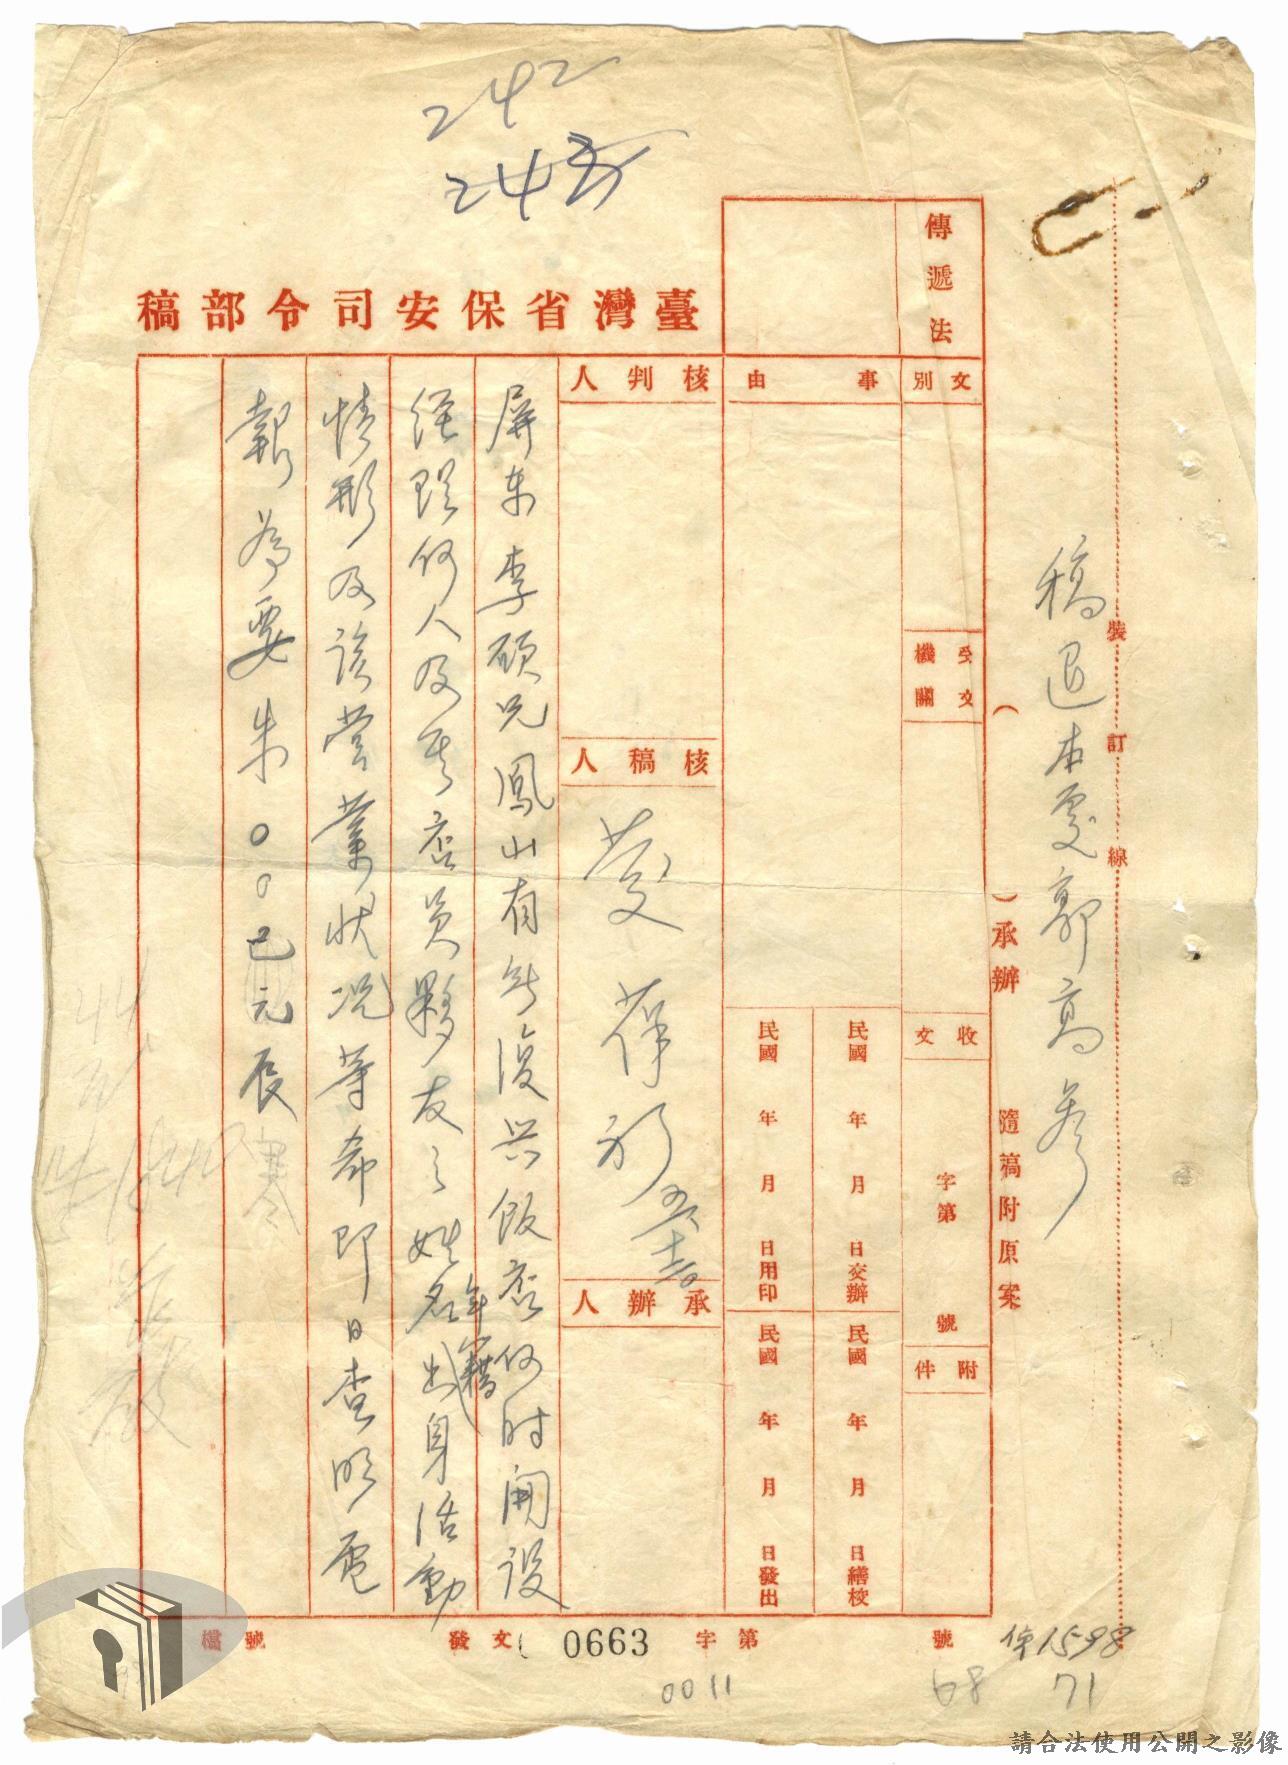 242
臺灣省保安司令部稿
傳遞法
文別
事由
核判人
受文機關
核稿人
承辦人
收文
字第
號
附件
民國 年 月 日交辦
民國 年 月 日繕校
民國 年 月 日用印
民國 年 月 日發出
裝訂線
( )承辦
隨稿附原案
稿退本處郭高參
屏東李碩兄鳳山有無復兴飯店何时開設
經理何人及其店員夥友之姓名年籍出身活動
情形及該营業狀况等希即日查明電
報為要朱〇〇巳元辰
寒
檔號
發文( 0663 字第 號
0011
68
71
1598
請合法使用公開之影像